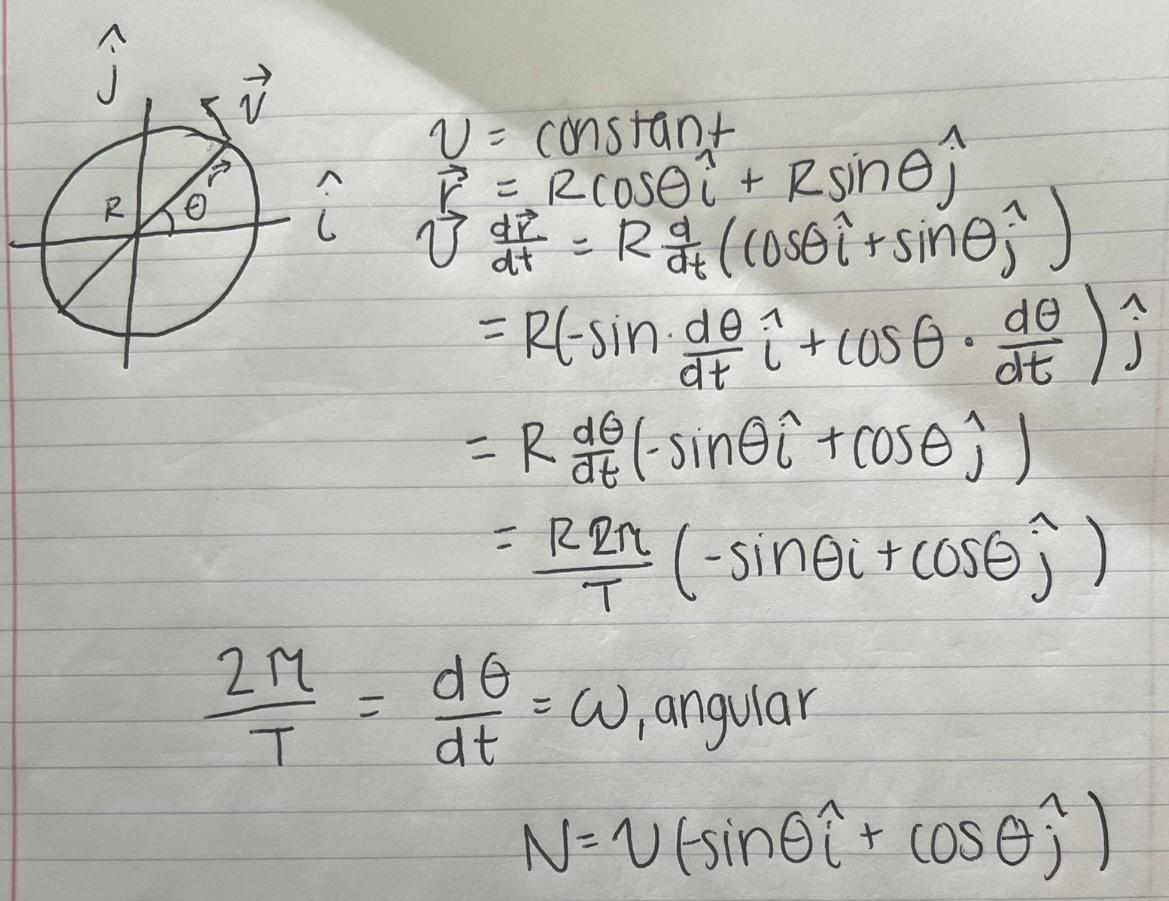 ĵ
v⃗
r⃗
R θ
î
v = constant
r⃗ = Rcosθî + Rsinθĵ
v⃗ dr⃗/dt = R d/dt (cosθî + sinθĵ)
= R(-sin · dθ/dt î + cosθ · dθ/dt ) ĵ
= R dθ/dt (-sinθî + cosθĵ)
= R2π/T (-sinθi + cosθĵ)
2π/T = dθ/dt = ω, angular
N = v(-sinθî + cosθĵ)